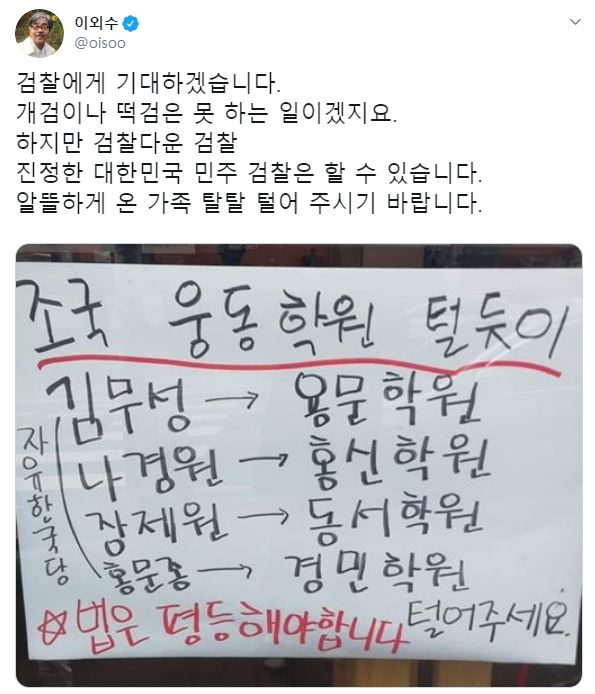 이외수
@oisoo
검찰에게 기대하겠습니다.
개검이나 떡검은 못 하는 일이겠지요.
하지만 검찰다운 검찰
진정한 대한민국 민주 검찰은 할 수 있습니다.
알뜰하게 온 가족 탈탈 털어 주시기 바랍니다.
조국 웅동학원 털듯이
자유한국당
김무성 → 용문학원
나경원 → 홍신학원
장제원 → 동서학원
홍문종 → 경민학원
☆법은 평등해야합니다 털어주세요.